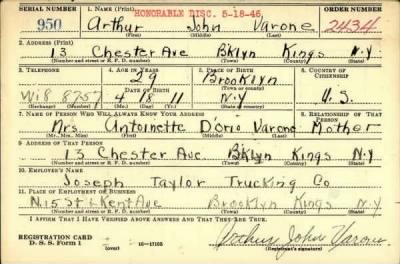 SERIAL NUMBER 1. NAME (Print) HONORABLE DISC. 5-18-46 ORDER NUMBER
950 Arthur John Varone 2434
(First) (Middle) (Last)
2. ADDRESS (Print)
13 Chester Ave Bklyn Kings N.Y
(Number and street or R. F. D. number) (Town) (County) (State)
3. TELEPHONE 4. AGE IN YEARS 5. PLACE OF BIRTH 6. COUNTRY OF CITIZENSHIP
29 Brooklyn
DATE OF BIRTH (Town or county)
Wi8 8757 4 18 11 N.Y U.S.
(Exchange) (Number) (Mo.) (Day) (Yr.) (State or country)
7. NAME OF PERSON WHO WILL ALWAYS KNOW YOUR ADDRESS 8. RELATIONSHIP OF THAT PERSON
Mrs Antoinette D'orio Varone Mother
(Mr., Mrs., Miss) (First) (Middle) (Last)
9. ADDRESS OF THAT PERSON
13 Chester Ave. Bklyn Kings N.Y
(Number and street or R. F. D. number) (Town) (County) (State)
10. EMPLOYER'S NAME
Joseph Taylor Trucking Co
11. PLACE OF EMPLOYMENT OR BUSINESS
N.15 St & Kent Ave Brooklyn Kings N.Y
(Number and street or R. F. D. number) (Town) (County) (State)
I AFFIRM THAT I HAVE VERIFIED ABOVE ANSWERS AND THAT THEY ARE TRUE.
REGISTRATION CARD
D. S. S. Form 1 (over) 16-17105 Arthur John Varone